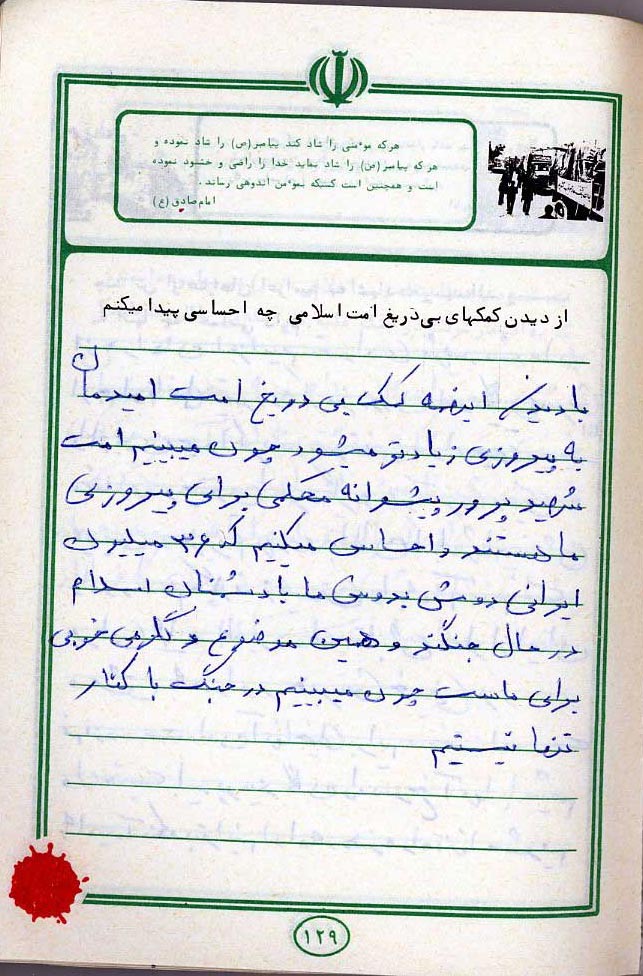 هرکه موٴمنی را شاد کند پیامبر(ص) را شاد نموده و
هرکه پیامبر(ص) را شاد نماید خدا را راضی و خشنود نموده
است و همچنین است کسیکه بموٴمن اندوهی رساند.
امام‌صادق(ع)
از دیدن کمکهای بی‌دریغ امت اسلامی چه احساسی پیدا میکنم
با دیدن اینهمه کمک بی دریغ امت امیدمان
به پیروزی زیادتر میشود چون میبینیم امت
شهید پرور پشتوانه محکمی برای پیروزی
ما هستند و احساس میکنیم که ۳۶ میلیون
ایرانی دوش بدوش ما با دشمنان اسلام
در حال جنگند و همین موضوع دلگرمی خوبی
برای ماست چون میبینیم در جنگ با کفار
تنها نیستیم
۱۲۹